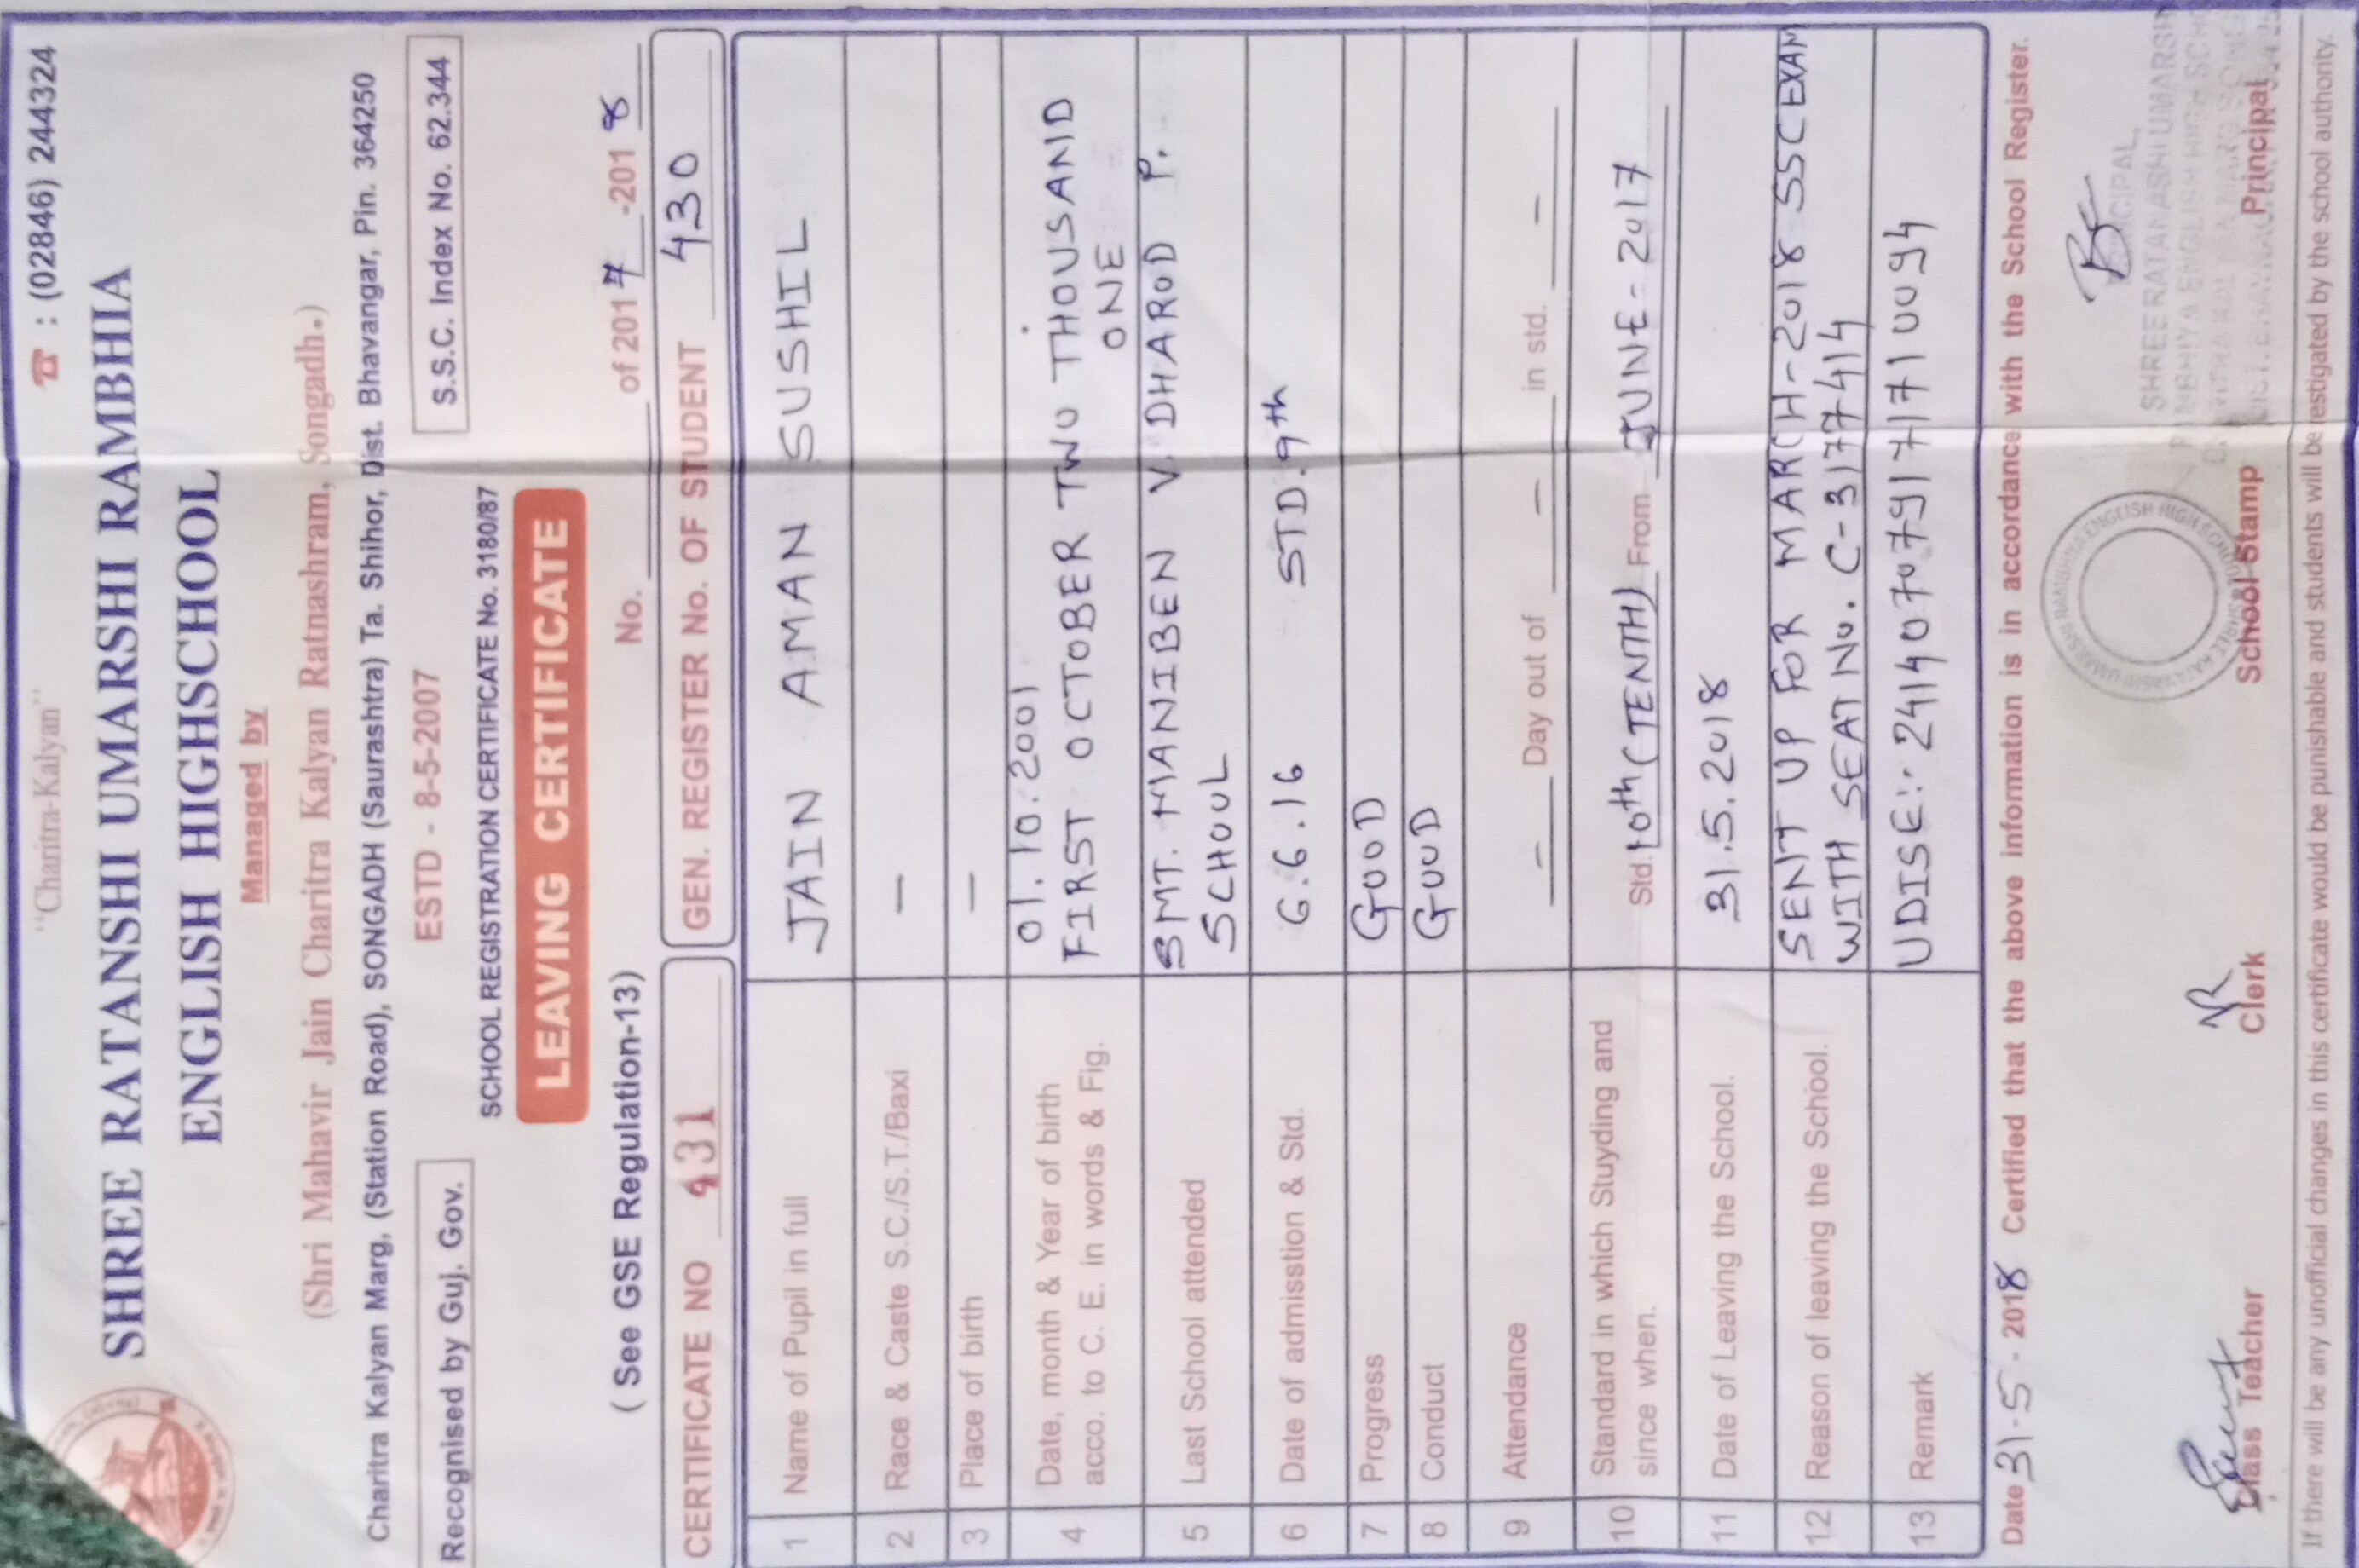 "Charitra-Kalyan"
☎ : (02846) 244324
SHREE RATANSHI UMARSHI RAMBHIA
ENGLISH HIGHSCHOOL
Managed by
(Shri Mahavir Jain Charitra Kalyan Ratnashram, Songadh.)
Charitra Kalyan Marg, (Station Road), SONGADH (Saurashtra) Ta. Shihor, Dist. Bhavangar, Pin. 364250
Recognised by Guj. Gov.
ESTD - 8-5-2007
S.S.C. Index No. 62.344
SCHOOL REGISTRATION CERTIFICATE No. 3180/87
LEAVING CERTIFICATE
( See GSE Regulation-13)
No. of 2017 -2018
CERTIFICATE NO 431
GEN. REGISTER No. OF STUDENT 430
1 Name of Pupil in full JAIN AMAN SUSHIL
2 Race & Caste S.C./S.T./Baxi —
3 Place of birth —
4 Date, month & Year of birth 01.10.2001
acco. to C. E. in words & Fig. FIRST OCTOBER TWO THOUSAND
ONE
5 Last School attended SMT. MANIBEN V. DHAROD P.
SCHOOL
6 Date of admisstion & Std. 6.6.16 STD. 9th
7 Progress GOOD
8 Conduct GOOD
9 Attendance — Day out of — in std. —
10 Standard in which Stuyding and
since when. Std. 10th (TENTH) From JUNE-2017
11 Date of Leaving the School. 31.5.2018
12 Reason of leaving the School. SENT UP FOR MARCH-2018 SSC EXAM
WITH SEAT No. C-3177414
13 Remark UDISE:- 24140707917171 0094
Date 31-5-2018 Certified that the above information is in accordance with the School Register.
PRINCIPAL,
SHREE RATANASHI UMARSHI
ENGLISH HIGH SCHO
Class Teacher
Clerk
School Stamp
Principal
If there will be any unofficial changes in this certificate would be punishable and students will be restigated by the school authority.